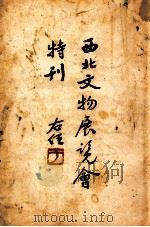 西北文物展览會
特刊
右任